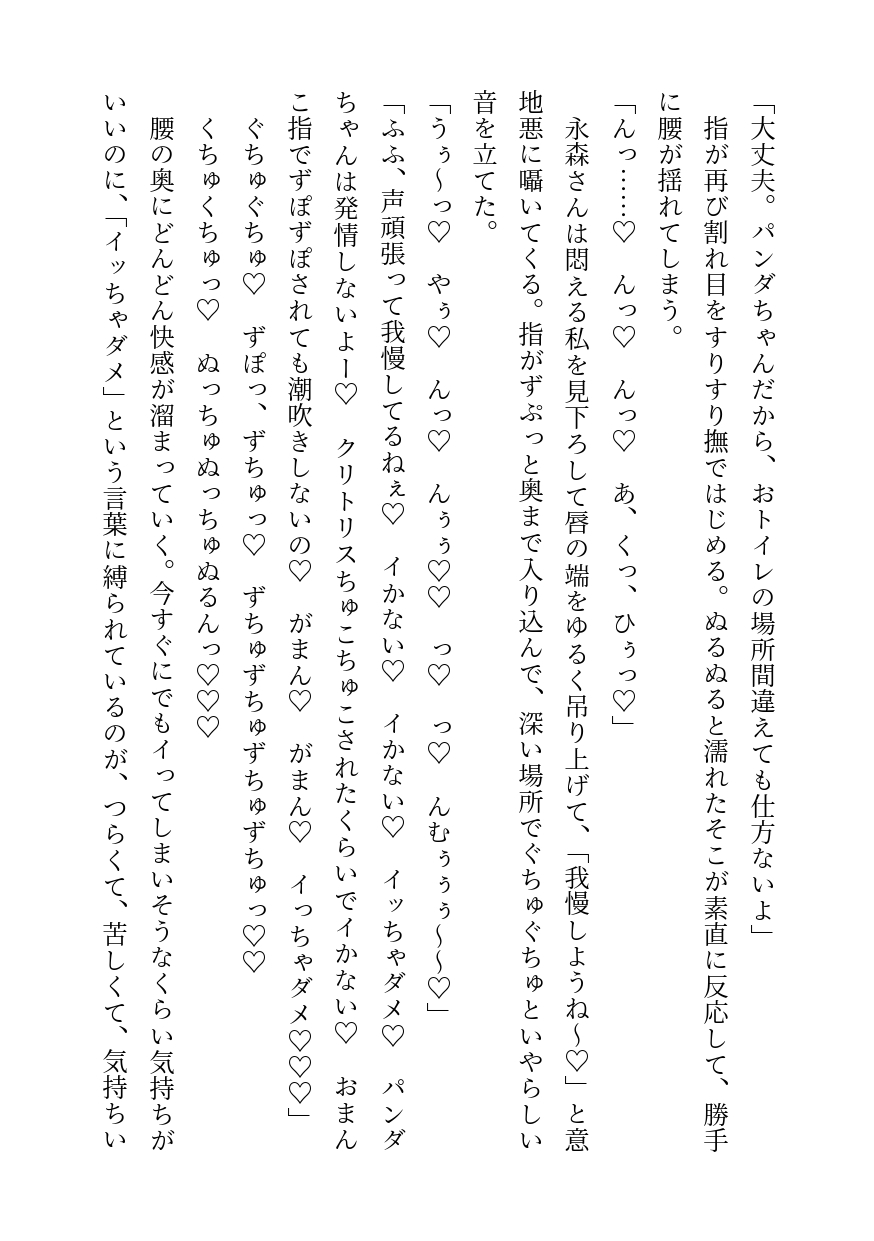 「大丈夫。パンダちゃんだから、おトイレの場所間違えても仕方ないよ」
　指が再び割れ目をすりすり撫ではじめる。ぬるぬると濡れたそこが素直に反応して、勝手
に腰が揺れてしまう。
「んっ……♡　んっ♡　んっ♡　あ、くっ、ひぅっ♡」
　永森さんは悶える私を見下ろして唇の端をゆるく吊り上げて、「我慢しようね〜♡」と意
地悪に囁いてくる。指がずぷっと奥まで入り込んで、深い場所でぐちゅぐちゅといやらしい
音を立てた。
「うぅ〜っ♡　やぅ♡　んっ♡　んぅぅ♡♡　っ♡　っ♡　んむぅぅぅ〜〜♡」
「ふふ、声頑張って我慢してるねぇ♡　イかない♡　イかない♡　イッちゃダメ♡　パンダ
ちゃんは発情しないよー♡　クリトリスちゅこちゅこされたくらいでイかない♡　おまん
こ指でずぽずぽされても潮吹きしないの♡　がまん♡　がまん♡　イっちゃダメ♡♡♡」
　ぐちゅぐちゅ♡　ずぽっ、ずちゅっ♡　ずちゅずちゅずちゅずちゅっ♡♡
　くちゅくちゅっ♡　ぬっちゅぬっちゅぬるんっ♡♡♡
　腰の奥にどんどん快感が溜まっていく。今すぐにでもイってしまいそうなくらい気持ちが
いいのに、「イッちゃダメ」という言葉に縛られているのが、つらくて、苦しくて、気持ちい